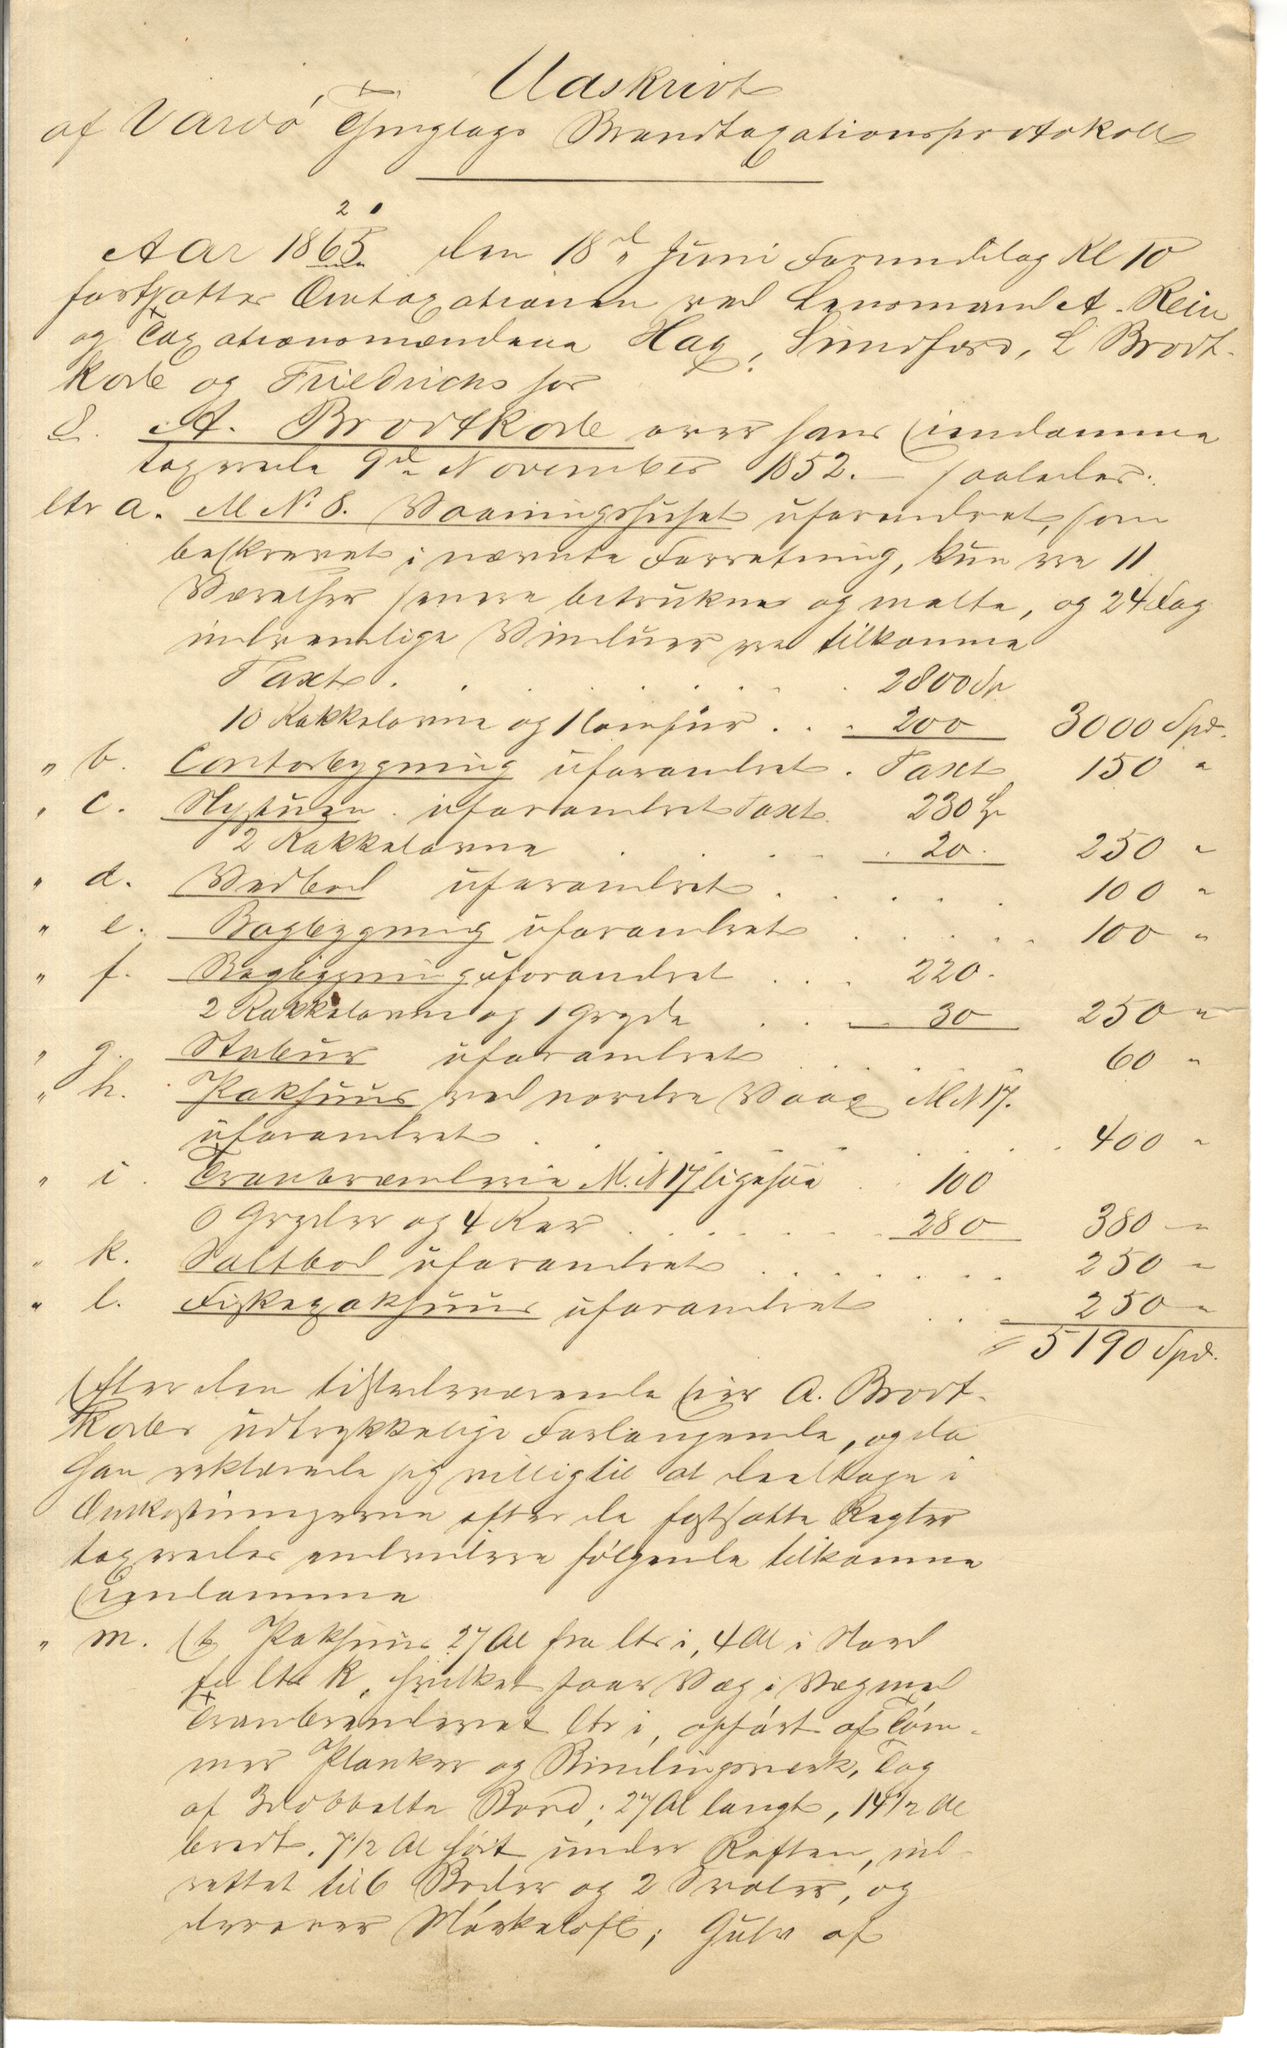 Udskrivt
af Vardö Thinglags Brandtaxationsprotokoll
2
Aar 1865 den 18de Juni Formiddag Kl 10
fortsattes Omtaxationen ved Lensmand A. Rein
og Taxationsmændene Hag, Sundfors, L Brodt-
korb og Friedrichs for
8. A. Brodtkorb over hans Eiendomme
taxerede 9de November 1852. — saaledes:
Ltr a. M No 8. Vaaningshuset uforandret, som
beskrevet i nævnte Forretning, kun ere 11
Værelser senere betrukne og malte, og 24 Fag
indvendige Vinduer ere tilkomne
Taxt . . . . . . 2800 Sp
10 Kakkelovne og 1 Comfur . . . 200 3000 Spd.
" b. Contorbygning uforandret . Taxt 150 "
" c. Nystuen . uforandret Taxt. 230 Sp
2 Kakkelovne . . . . 20. 250 "
" d. Vedbod uforandret . . . . . 100 "
" e. Bagbygning uforandret . . . . . 100 "
" f. Bagbygning uforandret . . . 220.
2 Kakkelovne og 1 Gryde . . . 30 250 "
" g. Stabur uforandret . . . . 60 "
" h. Pakhuus ved nordre Vaag M N 17.
uforandret . . . . . . 400 "
" i. Tranbrænderie M. N 17 ligesaa . . 100
6 Gryder og 4 Kar . . . . . . 280 380 "
" k. Saltbod uforandret . . . . . . . 250 "
" l. Fiskepakhuus uforandret . . 250 "
5190 Spd.
Efter den tilstedeværende Eier A. Brodt-
korbs udtrykkelige Forlangende, og da
han erklærede sig villig til at deeltage i
Omkostningerne efter de fastsatte Regler
taxeredes endvidere følgende tilkomne
Eiendomme
" m. Et Pakhuus 27 Al fra Ltr i, 4 Al i Nord
fra Ltr k, hvilket staar Væg i Væg med
Tranbrænderiet Ltr i, opført af Töm-
mer Planker og Bindingsværk, Tag
af 3 dobbelte Bord; 27 Al langt, 14 1/2 Al
bredt. 7 1/2 Al høit under Raften, ind-
rettet til 6 Boder og 2 Svaler, og
derover Mørkeloft; Gulv af